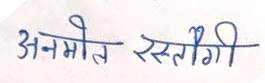 अनमोल रस्तौगी